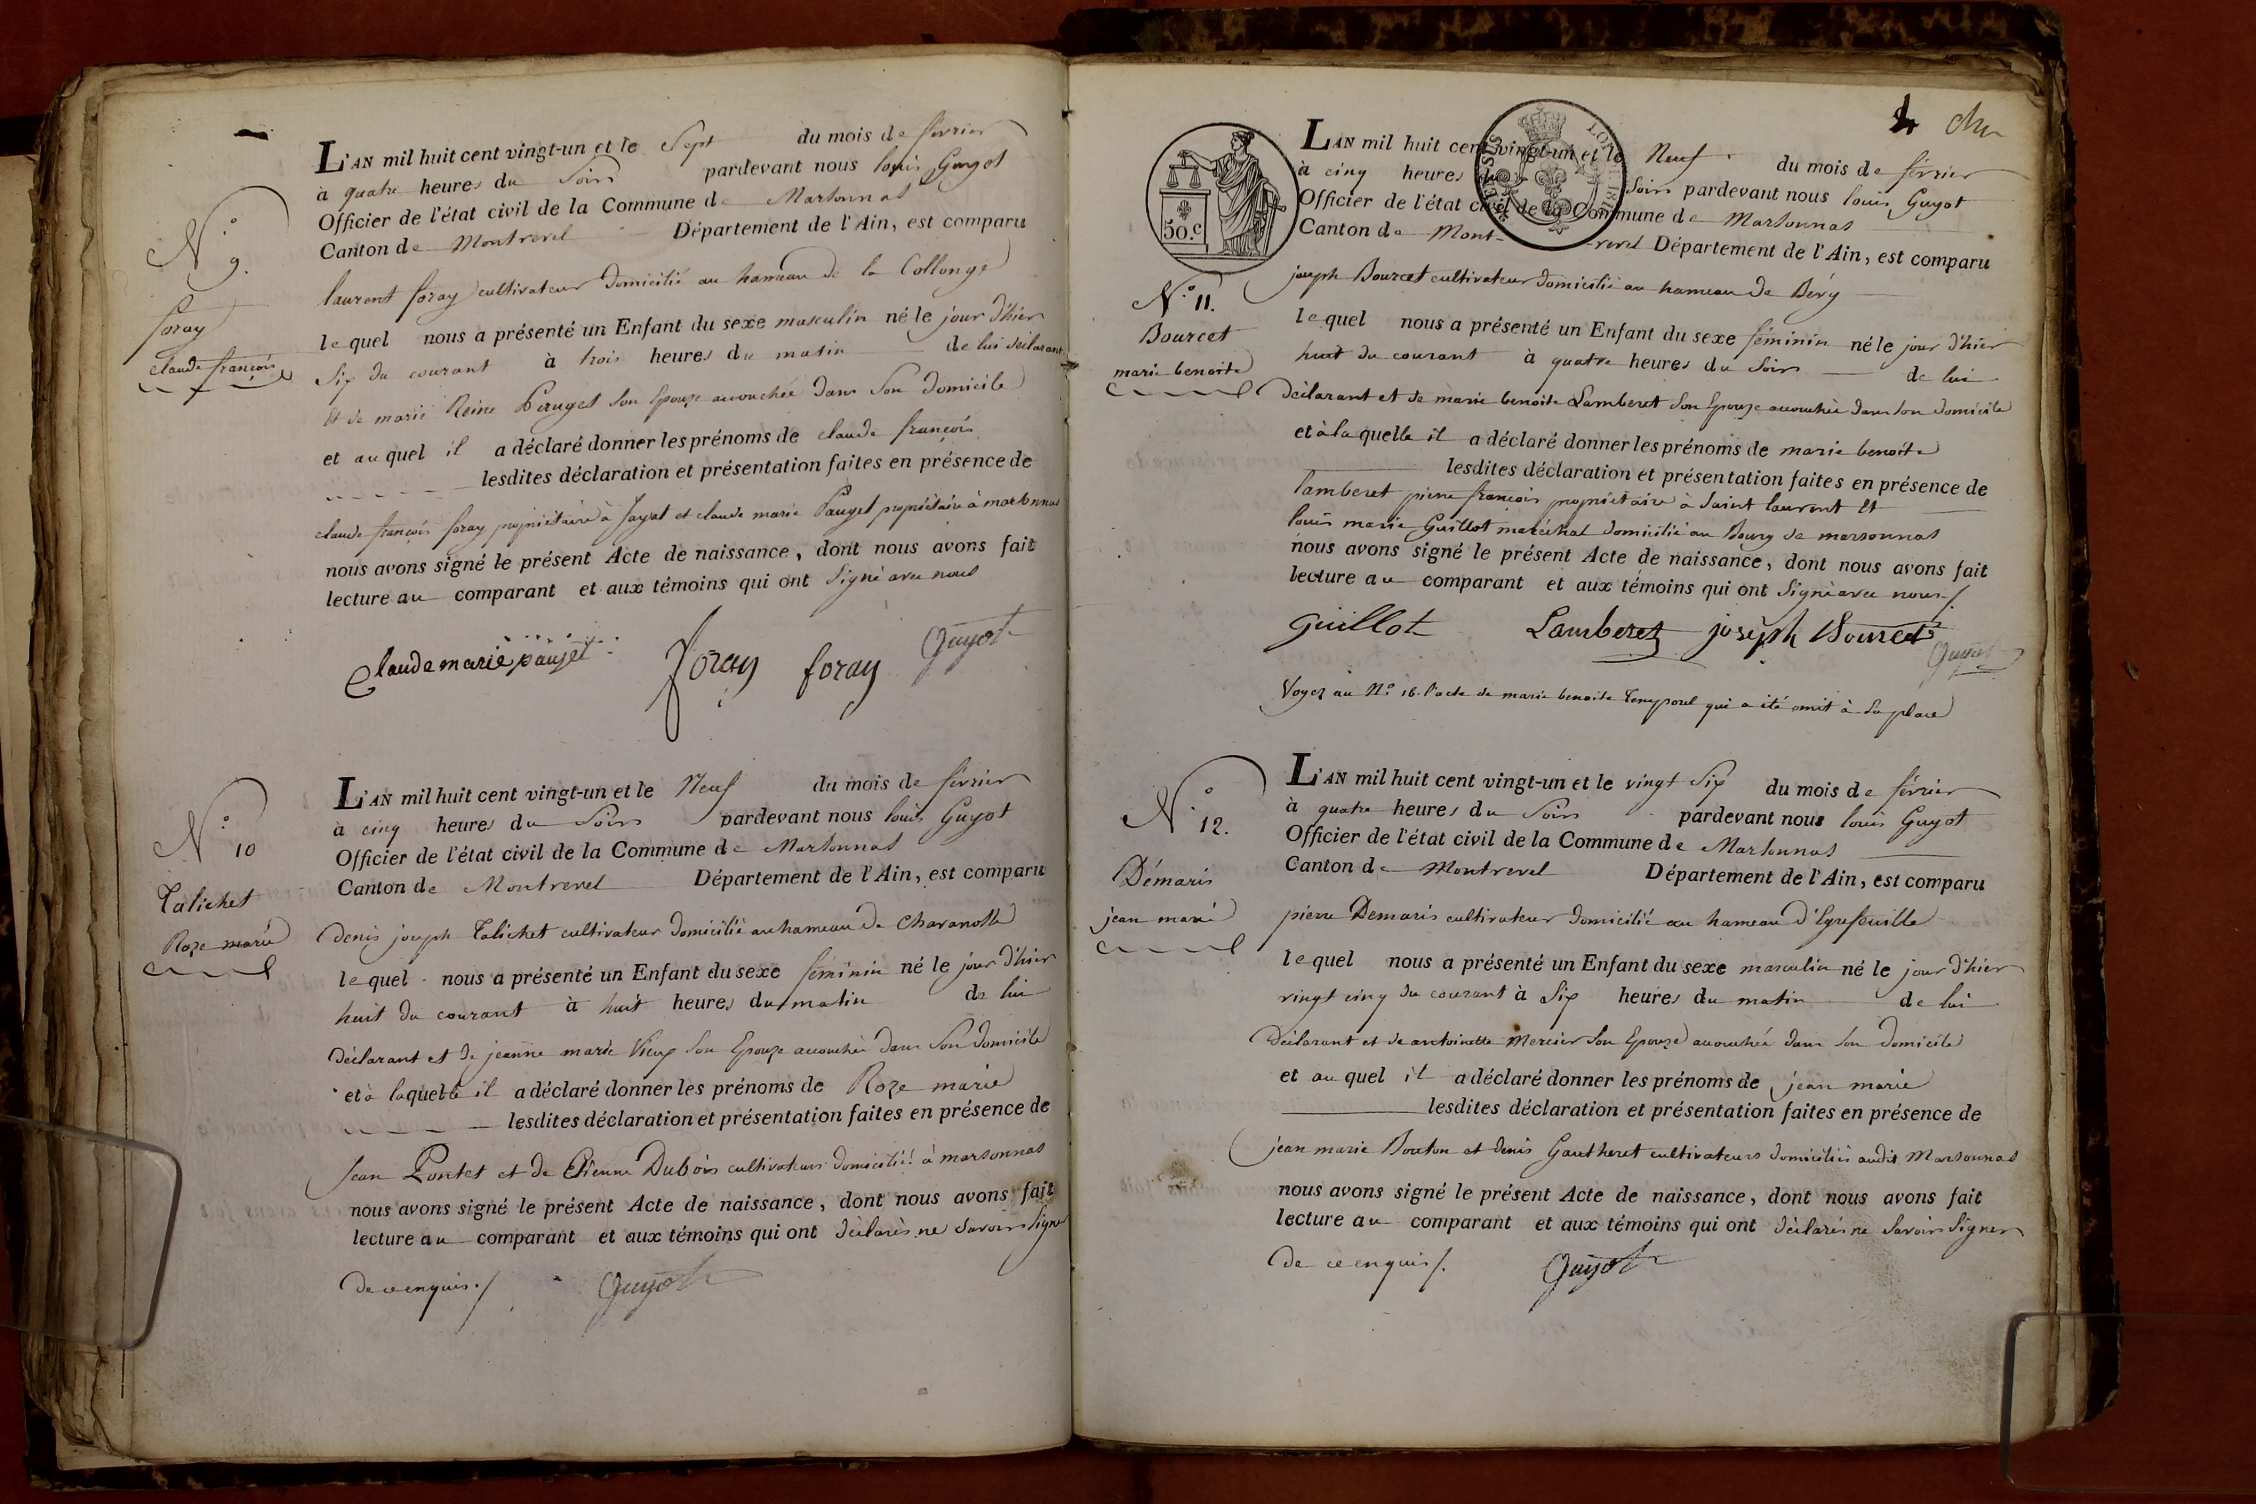 N.° 9.
foray
claude françois
L'AN mil huit cent vingt-un et le Sept du mois de février
à quatre heures du Soir pardevant nous louis Guyot
Officier de l'état civil de la Commune de Marsonnas
Canton de Montrevel Département de l'Ain, est comparu
laurent foray cultivateur domicilié au hameau de la Collonge
lequel nous a présenté un Enfant du sexe masculin né le jour d'hier
Six du courant à trois heures du matin de lui déclarant
et de marie Reine Pauget son Epouze accouchée dans Son domicile
et au quel il a déclaré donner les prénoms de claude françois
lesdites déclaration et présentation faites en présence de
claude françois foray propriétaire à Jayat et claude marie Pauget propriétaire à marsonnas
nous avons signé le présent Acte de naissance, dont nous avons fait
lecture au comparant et aux témoins qui ont Signé avec nous
Claude marie pauget foray foray Guyot
N.° 10
Talichet
Roze marie
L'AN mil huit cent vingt-un et le Neuf du mois de février
à cinq heures du Soir pardevant nous louis Guyot
Officier de l'état civil de la Commune de Marsonnas
Canton de Montrevel Département de l'Ain, est comparu
denis joseph Talichet cultivateur domicilié au hameau de Charanolle
lequel nous a présenté un Enfant du sexe féminin né le jour d'hier
huit du courant à huit heures du matin de lui
déclarant et de jeanne marie Vieux Son Epouze accouchée dans Son domicile
et à laquelle il a déclaré donner les prénoms de Roze marie
lesdites déclaration et présentation faites en présence de
Jean Pontet et de Etienne Dubois cultivateurs domiciliés à marsonnas
nous avons signé le présent Acte de naissance, dont nous avons fait
lecture au comparant et aux témoins qui ont déclarés ne Savoir Signer
de ce enquis ./ Guyot
4
50.c
N.° 11.
Bourcet
marie benoite
L'AN mil huit cent vingt-un et le Neuf du mois de février
à cinq heures du Soir pardevant nous louis Guyot
Officier de l'état civil de la Commune de Marsonnas
Canton de Mont-revel Département de l'Ain, est comparu
joseph Bourcet cultivateur domicilié au hameau de Bévy
lequel nous a présenté un Enfant du sexe féminin né le jour d'hier
huit du courant à quatre heures du Soir de lui
déclarant et de marie benoite Lamberet Son Epouze accouchée dans son domicile
et à la quelle il a déclaré donner les prénoms de marie benoite
lesdites déclaration et présentation faites en présence de
lamberet pierre françois propriétaire à Saint laurent Et
louis marie Guillot maréchal domicilié au Bourg de marsonnas
nous avons signé le présent Acte de naissance, dont nous avons fait
lecture au comparant et aux témoins qui ont Signé avec nous ./
Guillot Lamberet joseph Bourcet Guyot
Voyez au N.° 16. l'acte de marie benoite Temporel qui a été omit à Sa place
N.° 12.
Démaris
jean marie
L'AN mil huit cent vingt-un et le vingt Six du mois de février
à quatre heures du Soir pardevant nous louis Guyot
Officier de l'état civil de la Commune de Marsonnas
Canton de Montrevel Département de l'Ain, est comparu
pierre Demaris cultivateur domicilié au hameau d'Egrefeuille
lequel nous a présenté un Enfant du sexe masculin né le jour d'hier
vingt cinq du courant à Six heures du matin de lui
déclarant et de antoinette Mercier Son Epouze accouchée dans Son domicile
et au quel il a déclaré donner les prénoms de jean marie
lesdites déclaration et présentation faites en présence de
jean marie Bouton et denis Gautheret cultivateurs domiciliés audit Marsonnas
nous avons signé le présent Acte de naissance, dont nous avons fait
lecture au comparant et aux témoins qui ont déclarés ne Savoir Signer
de ce enquis /. Guyot